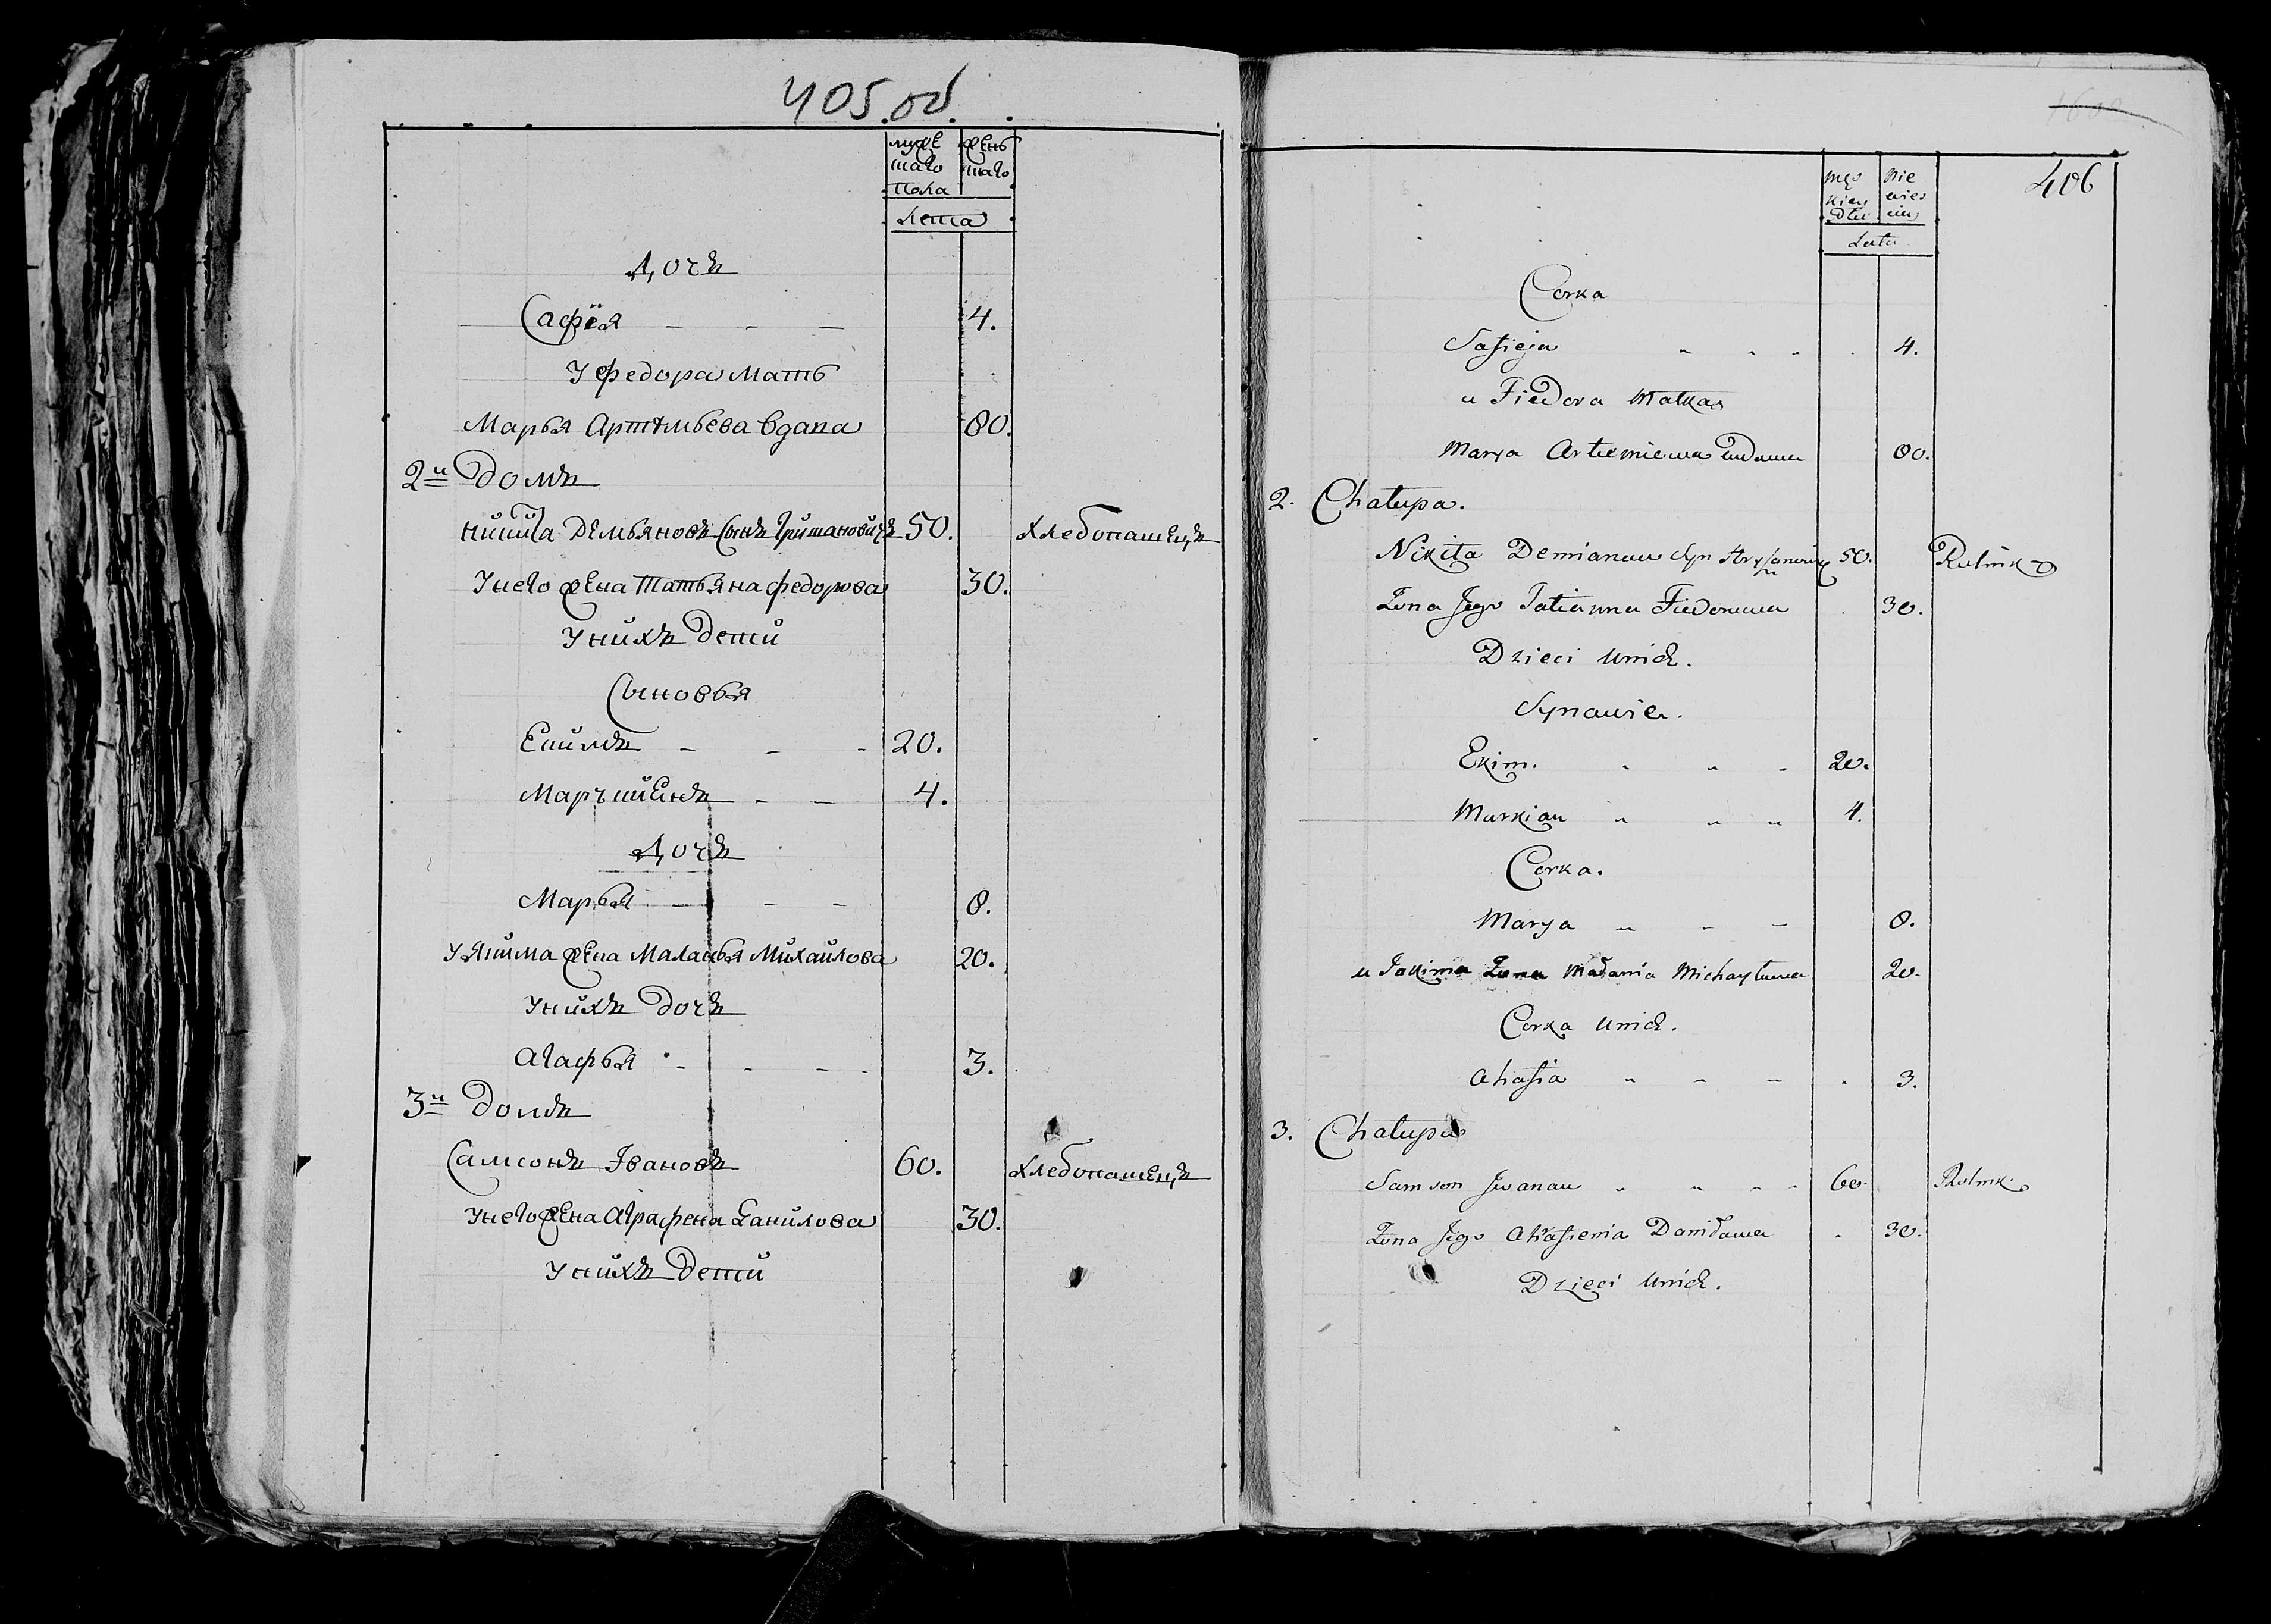 405.об.
мужескаго
женскаго
Пола
Лета
Дочъ
Сафїя - - - 4.
У Федора Мать
Марья Артемьева вдава 80.
2й Домъ
Никита Демьяновъ Сынъ Гришановичъ 50. Хлебопашецъ
У него жена Татьяна Федорова 30.
У нихъ Дети
Сыновья
Екимъ - - - 20.
Маркиѣнъ - - 4.
Дочъ
Марья - - - 8.
У Якима жена Маланья Михаилова 20.
У нихъ Дочъ
Агафья - - - 3.
3й Домъ
Самсонъ Івановъ 60. Хлебопашецъ
У него жена Аграфена Данилова 30.
У нихъ Дети
406
Lata
Corka
Safieja 4.
u Fiedora Matka
Marya Artiemiewa wdawa 80.
2. Chałupa.
Nikita Demianau Syn Hryszanowicz 50. Rolnik
Zona Jego Tatianna Fiedorowa 30.
Dzieci Unich.
Synawie.
Ekim. 20.
Markian 4.
Corka.
Marya 8.
u Jakima Zona Małania Michayłowa 20.
Corka Unich.
Ahafia 3.
3. Chałupa
Samson Jwanau 60. Rolnik
Zona Jego Ahrafienia Daniława 30.
Dzieci Unich.